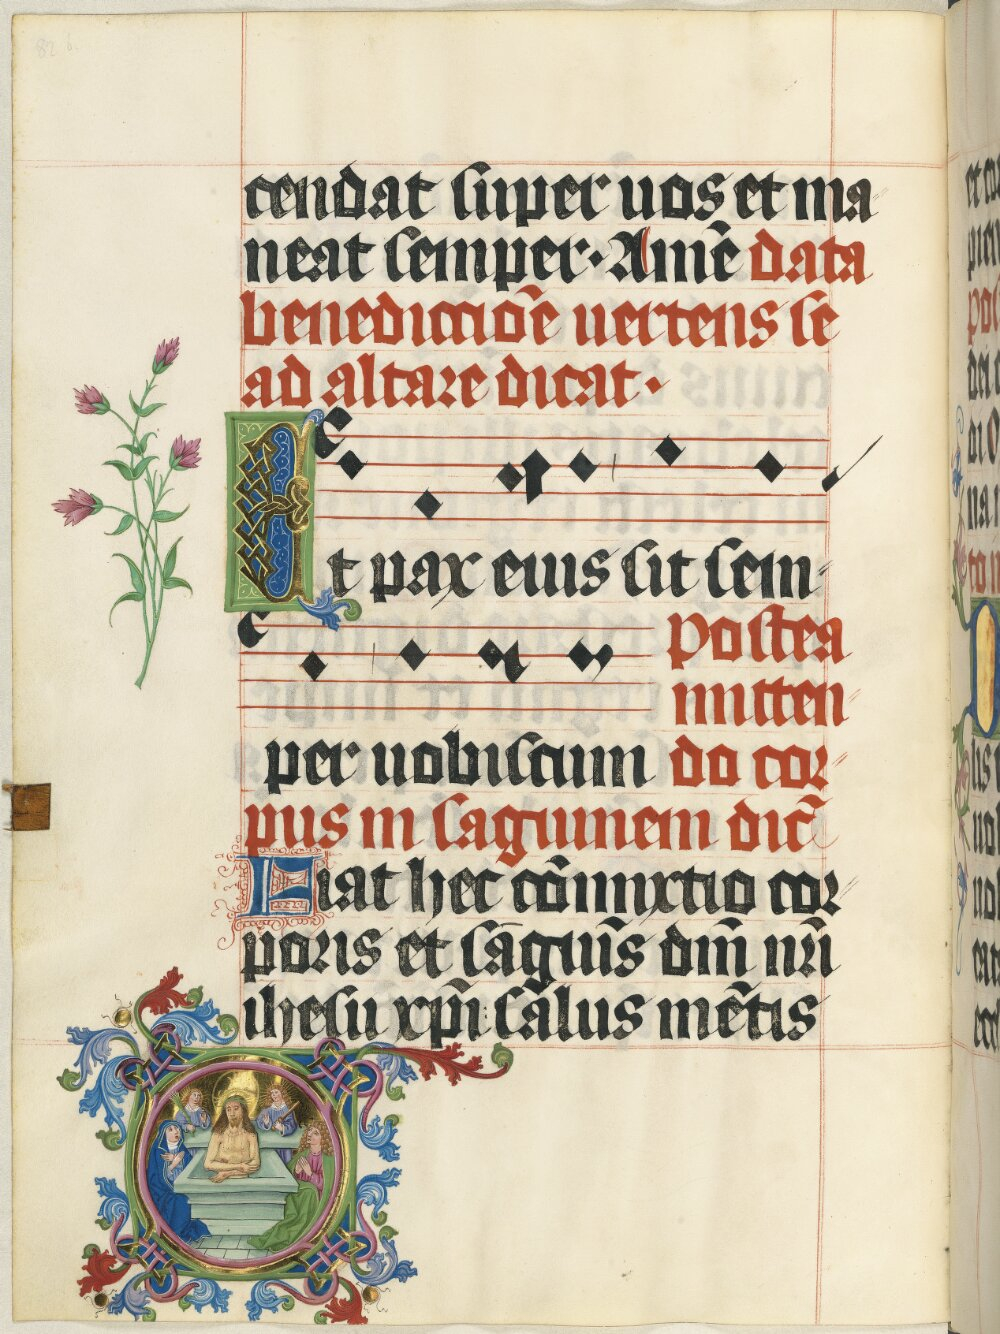 cendat super uos et ma
neat semper · Amē data
benedictiōe uertens se
ad altare dicat ·
Et pax eius sit sem
per uobiscum
Postea
mitten
do cor
pus in sagwinem dic̄
Fiat hec cōmixtio cor
poris et sāgwīs dn̄i nr̄i
ihesu xp̄i sālus mētis